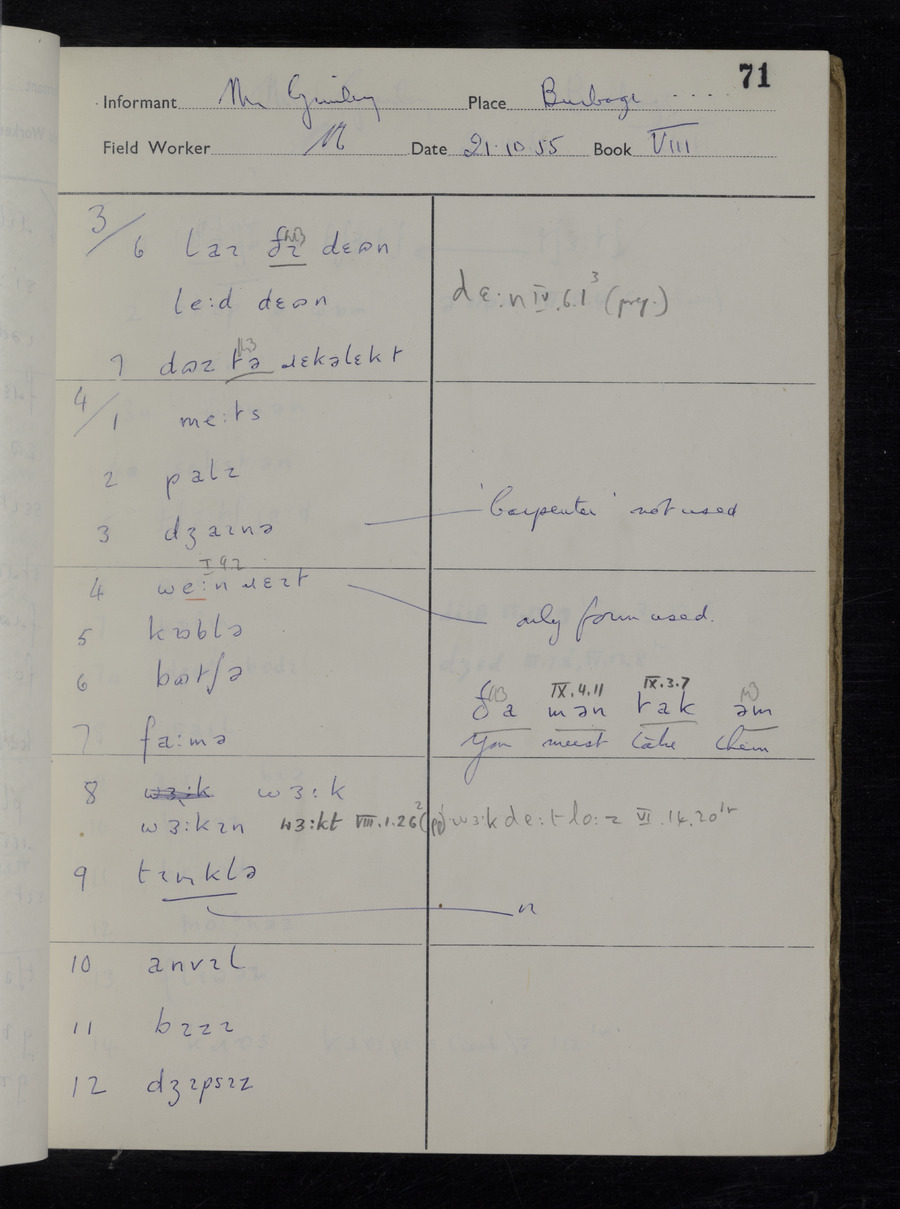 71
Informant Mr Place Burbage
Field Worker M Date 21.10.55 Book VIII
3/
6 laɪ dɛɷn
le:d dɛɷn dɛ:n IV.6.1³ (prep.)
7 dɷz tə ɹɛkəlɛkt
4/1 me:ts
2 palz
3 dʒaɪnə 'Carpenter' not used
I 9 2
4 we:nɹɛɪt only form used.
5 kɒblə
6 bɷtʃə
IX.4.11 IX.3.7
ða mən tak əm
7 fa:mə You must take them
8 wɜ:k wɜ:k
wɜ:kɪn wɜ:kt VIII.1.26² (pp) wɜ:k de:t lo:z VI.14.20
9 tɪŋklə
n
10 anvɪl
11 bɪzɪ
12 dʒɪpsɪz